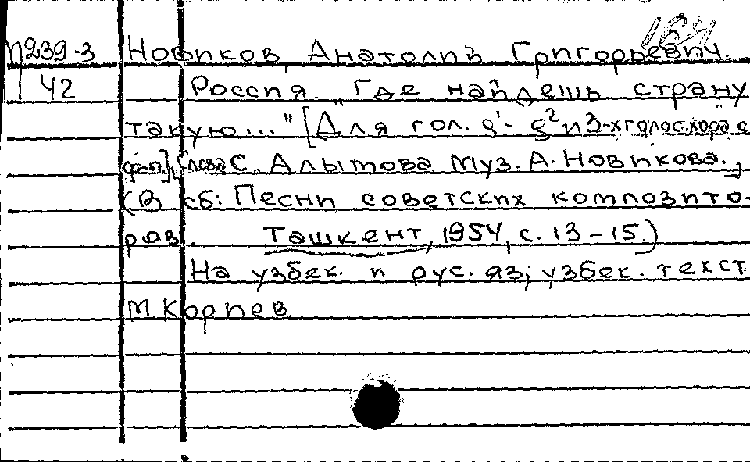 П239-3 Новиков, Анатолий Григорьевич.
42 Россия. „Где найдешь страну
такую..." [Для гол. g¹- g² и 3-х голос. хора с
ф-п.]. Слова С. Алымова Муз. А. Новикова.,
(В сб: Песни советских композито-
ров. Ташкент, 1954, с. 13-15.)
На узбек. и рус. яз; узбек. текст
М. Корпев